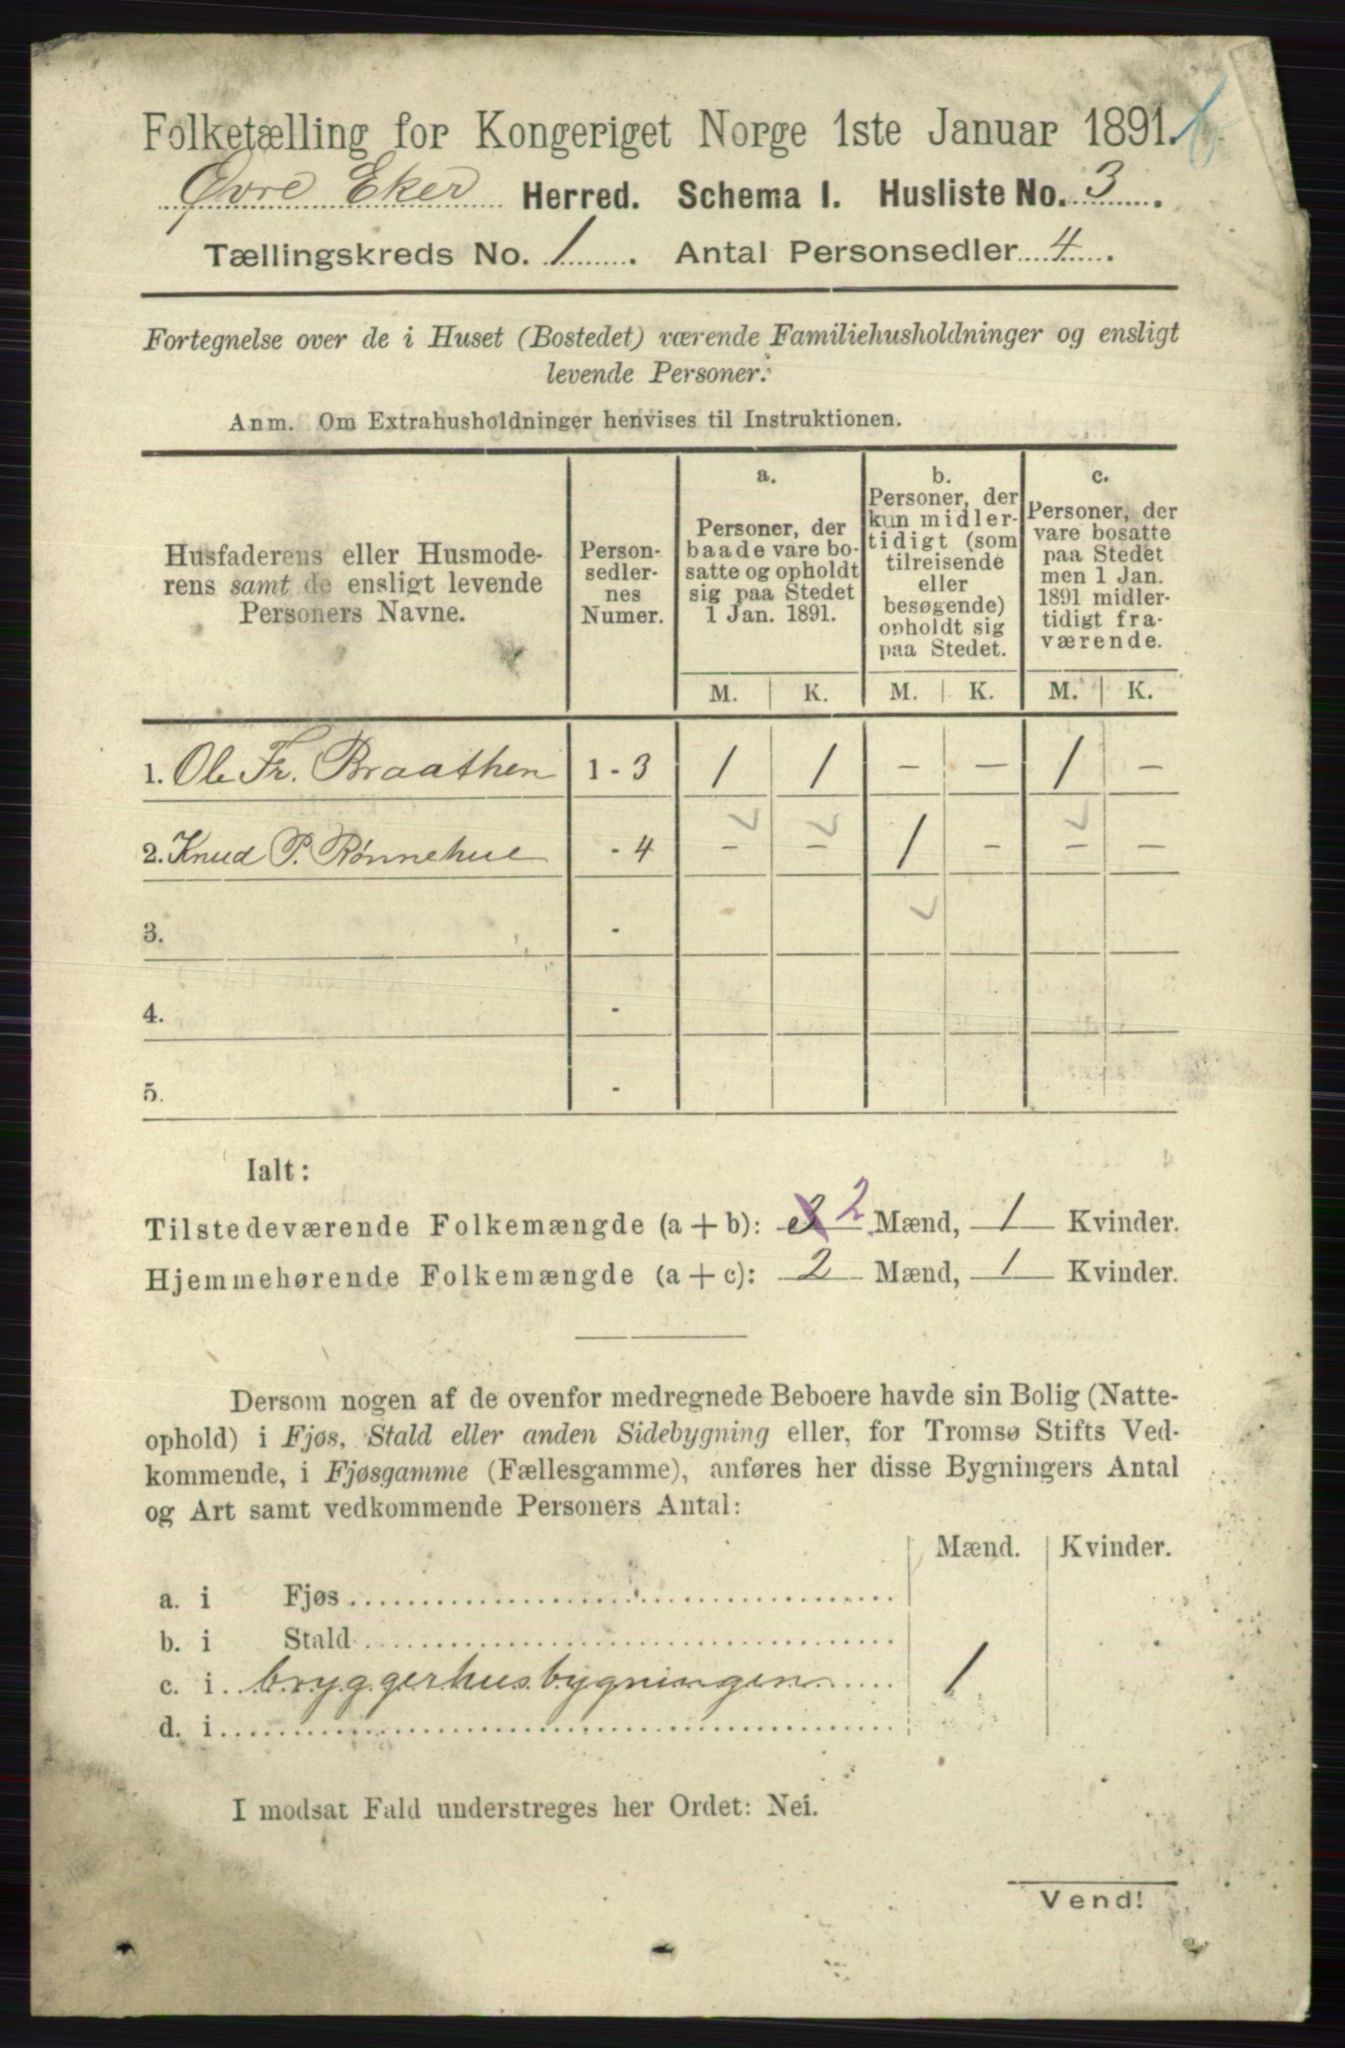 Folketælling for Kongeriget Norge 1ste Januar 1891.
Øvre Eker Herred. Schema I. Husliste No. 3.
Tællingskreds No. 1. Antal Personsedler 4.
Fortegnelse over de i Huset (Bostedet) værende Familiehusholdninger og ensligt
levende Personer.
Anm. Om Extrahusholdninger henvises til Instruktionen.
Husfaderens eller Husmode-
rens samt de ensligt levende
Personers Navne.
Person-
sedler-
nes
Numer.
a.
Personer, der
baade vare bo-
satte og opholdt
sig paa Stedet
1 Jan. 1891.
b.
Personer, der
kun midler-
tidigt (som
tilreisende
eller
besøgende)
opholdt sig
paa Stedet.
c.
Personer, der
vare bosatte
paa Stedet
men 1 Jan.
1891 midler-
tidigt fra-
værende.
M. K. M. K. M. K.
1. Ole Fr. Braathen 1 - 3 1 1 - - 1 -
2. Knud P. Rønnehue - 4 - - 1 - - -
3. -
4. -
5. -
Ialt:
Tilstedeværende Folkemængde (a + b): 2 Mænd, 1 Kvinder.
Hjemmehørende Folkemængde (a + c): 2 Mænd, 1 Kvinder.
Dersom nogen af de ovenfor medregnede Beboere havde sin Bolig (Natte-
ophold) i Fjøs, Stald eller anden Sidebygning eller, for Tromsø Stifts Ved-
kommende, i Fjøsgamme (Fællesgamme), anføres her disse Bygningers Antal
og Art samt vedkommende Personers Antal:
Mænd. Kvinder.
a. i Fjøs
b. i Stald
c. i bryggerhusbygningen 1
d. i
I modsat Fald understreges her Ordet: Nei.
Vend!